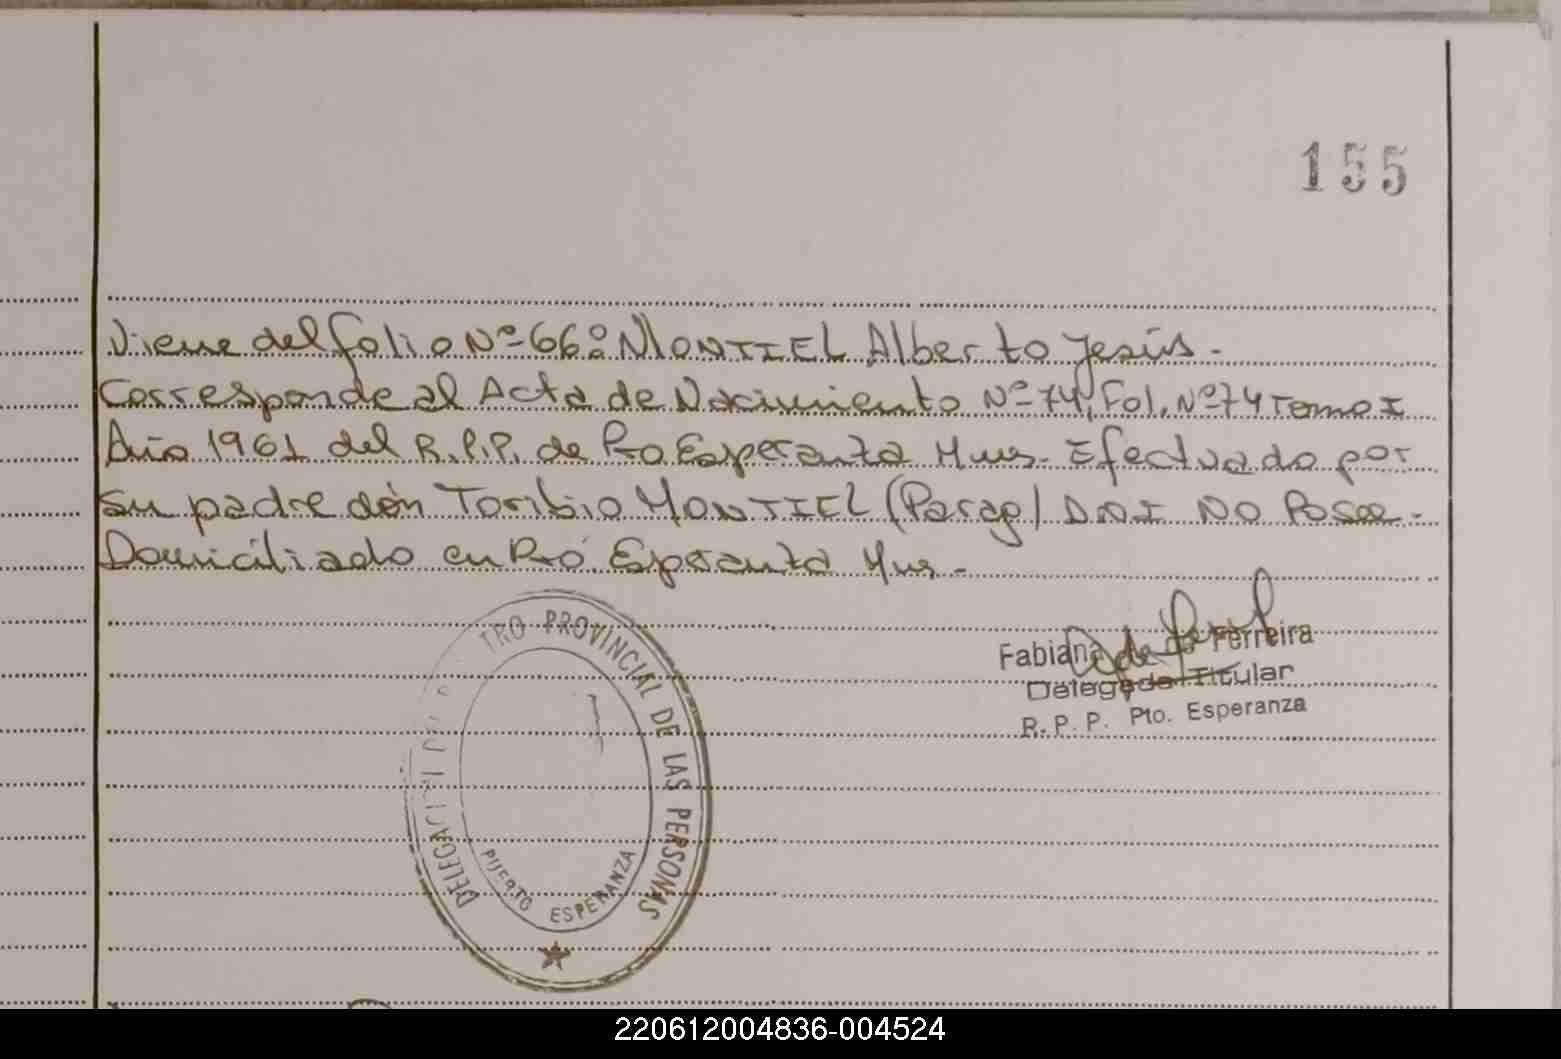 155
Viene del folio Nº 66: MONTIEL Alberto Jesús.-
Corresponde al Acta de Nacimiento Nº 74, Fol. Nº 74 Tomo I
Año 1961 del R.P.P. de Pto Esperanza Mnes. Efectuado por
su padre don Toribio MONTIEL (Parag) D.N.I NO Posee.-
Domiciliado en Pto. Esperanza Mnes.-
TRO PROVINCIAL DE LAS PERSONAS
DELEGACION
PUERTO ESPERANZA
Fabiana de Ferreira
Delegada Titular
R. P. P. Pto. Esperanza
220612004836-004524